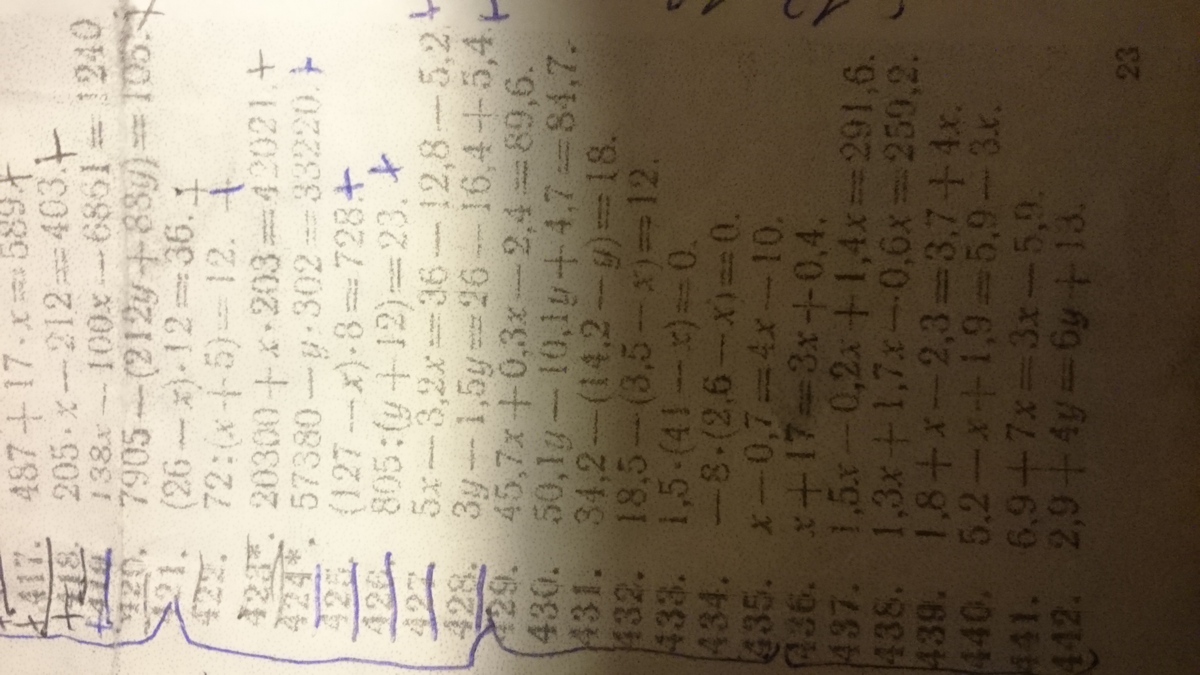 417. 487+17·x=589.+
418. 205·x−212=403.+
419. 138x−100x−6861=1240
420. 7905−(212y+83y)=105.
421. (26−x)·12=36.+
422. 72:(x+5)=12.+
423*. 20300+x·203=42021.+
424*. 57380−y·302=33220.+
425. (127−x)·8=728.+
426. 805:(y+12)=23.+
427. 5x−3,2x=36−12,8−5,2.+
428. 3y−1,5y=26−16,4+5,4.+
429. 45,7x+0,3x−2,4=89,6.
430. 50,1y−10,1y+4,7=84,7.
431. 34,2−(14,2−y)=18.
432. 18,5−(3,5−x)=12.
433. 1,5·(41−x)=0.
434. −8·(2,6−x)=0.
435. x−0,7=4x−10.
436. x+17=3x+0,4.
437. 1,5x−0,2x+1,4x=291,6.
438. 1,3x+1,7x−0,6x=259,2.
439. 1,8+x−2,3=3,7+4x.
440. 5,2−x+1,9=5,9−3x.
441. 6,9+7x=3x−5,9.
442. 2,9+4y=6y+13.
23